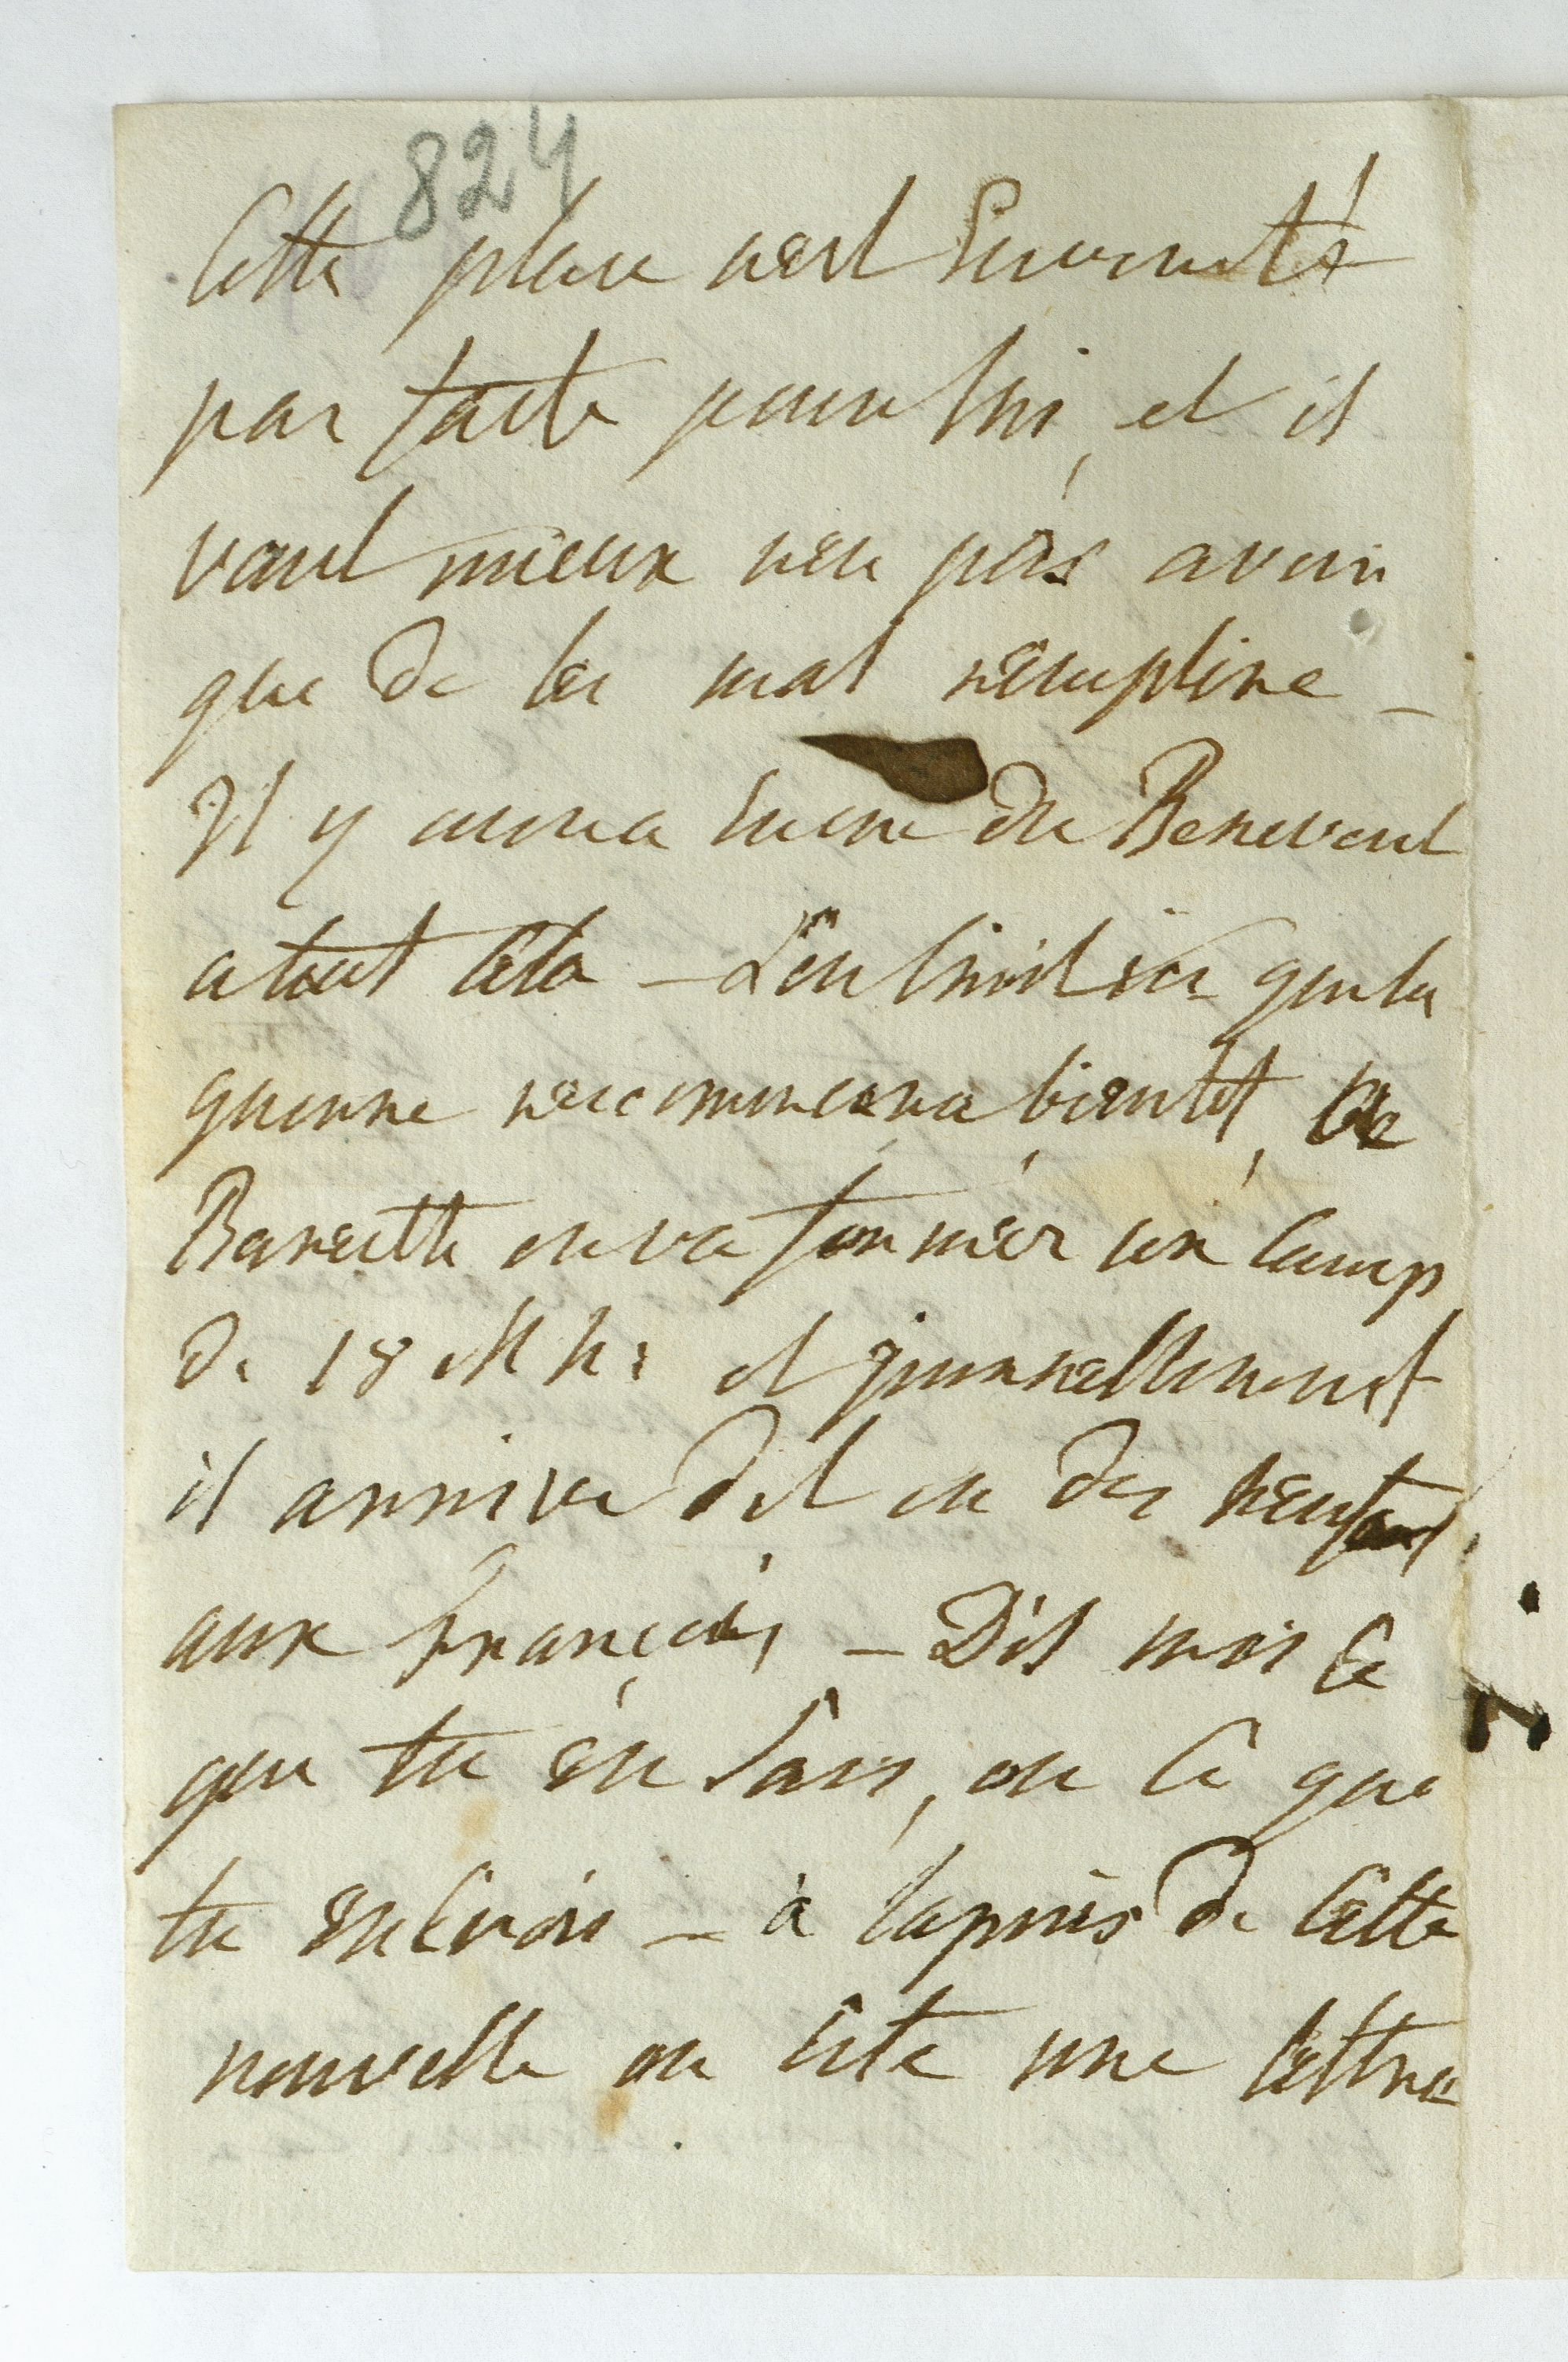 824
Cette place n'est surement
par faite pour lui, et il
vaut mieux n'en pas avoir
que de les mal remplire –
Il y aura du Benevent
a tout cela – L'on croit ici que la
guerre reccomencera bientôt, de
Bareith on va former un camp
de 18 M h: et journellement
il arrive dit on des renforts
aux Français – Dis mois ce
que tu en sais, ou ce que
tu en crois – à lapuis de cette
nouvelle on cite une lettre